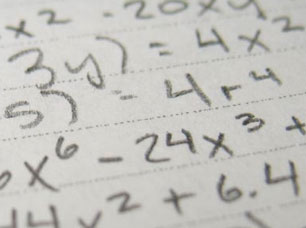 x² - 20xy
3y) = 4x²
5) = 4r⁴
x⁶ - 24x³ +
4x² + 6.4